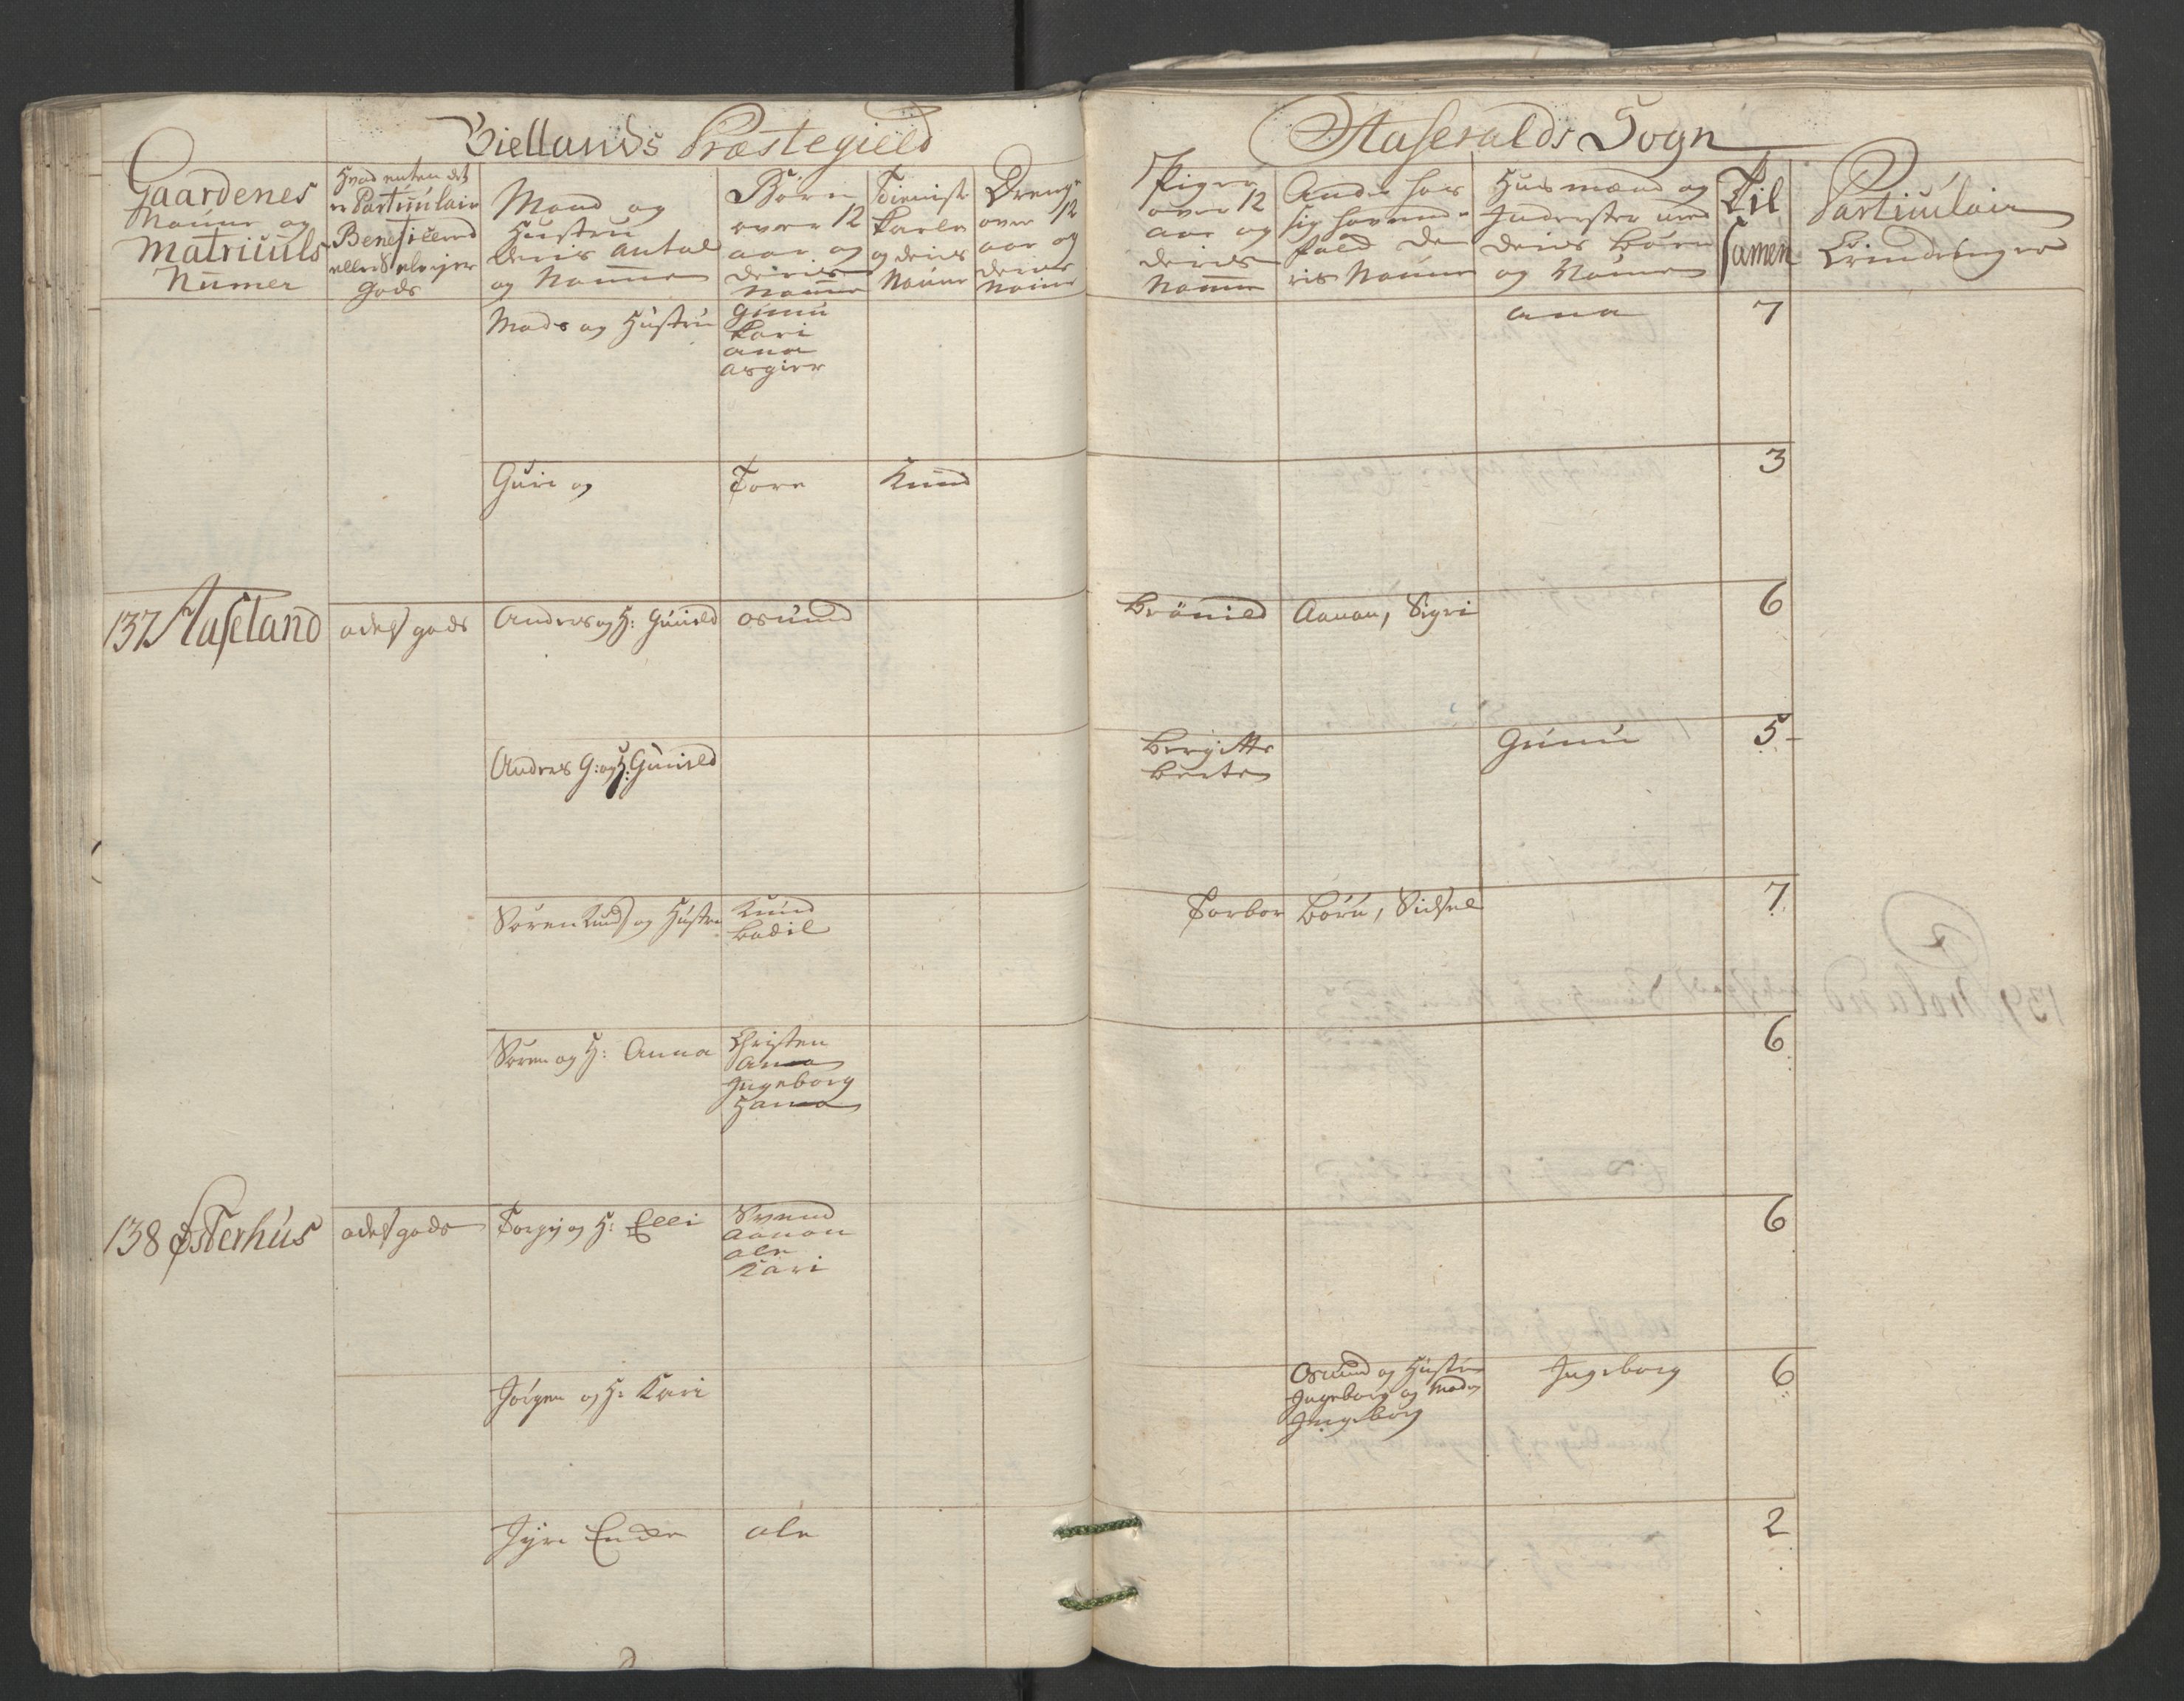 Biellands Præstegield
Aaseralds Sogn
Gaardenes
Naune og
Matriculs
Numer
Hvad enten det
er Particulair
Beneficered
eller Selvejer
Gods
Mand og
Hustru
deris Antal
og Naune
Børn
over 12
aar og
deris
Naune
Tieniste
Karle
og deris
Naune
Drenge
over 12
aar og
deris
Naune
Piger
over 12
aar og
deris
Naune
Andre hos
sig havend
fald de
ris Naune
Husmænd og
Inderster med
deris Børn
og Naune
Til
samen
Particulair
Erindringer
Mads og Hustru
Gunu
Kari
ana
asgier
ana
7
Guri og
Tore
Knud
3
137 Aaseland
odels gods
Andres og H: Guneld
osuind
Brönild
Aanan, Sigri
6
Andres G: og H: Guneld
Bergitte
Berte
Gunu
5
Søren Knuds og Hustru
Knud
Bodil
Torbor
Börn, Sidsel
7
Søren og H: Anna
Christen
Ana
Ingeborg
Hana
6
138 Østerhus
odels gods
Torgy og H: Elli
Svend
Aanon
ole
Kari
6
Jörgen og H: Kari
Osuind og Hustru
Ingeborg og Mads
Ingeborg
Ingeborg
6
Jyri Ende
ole
2